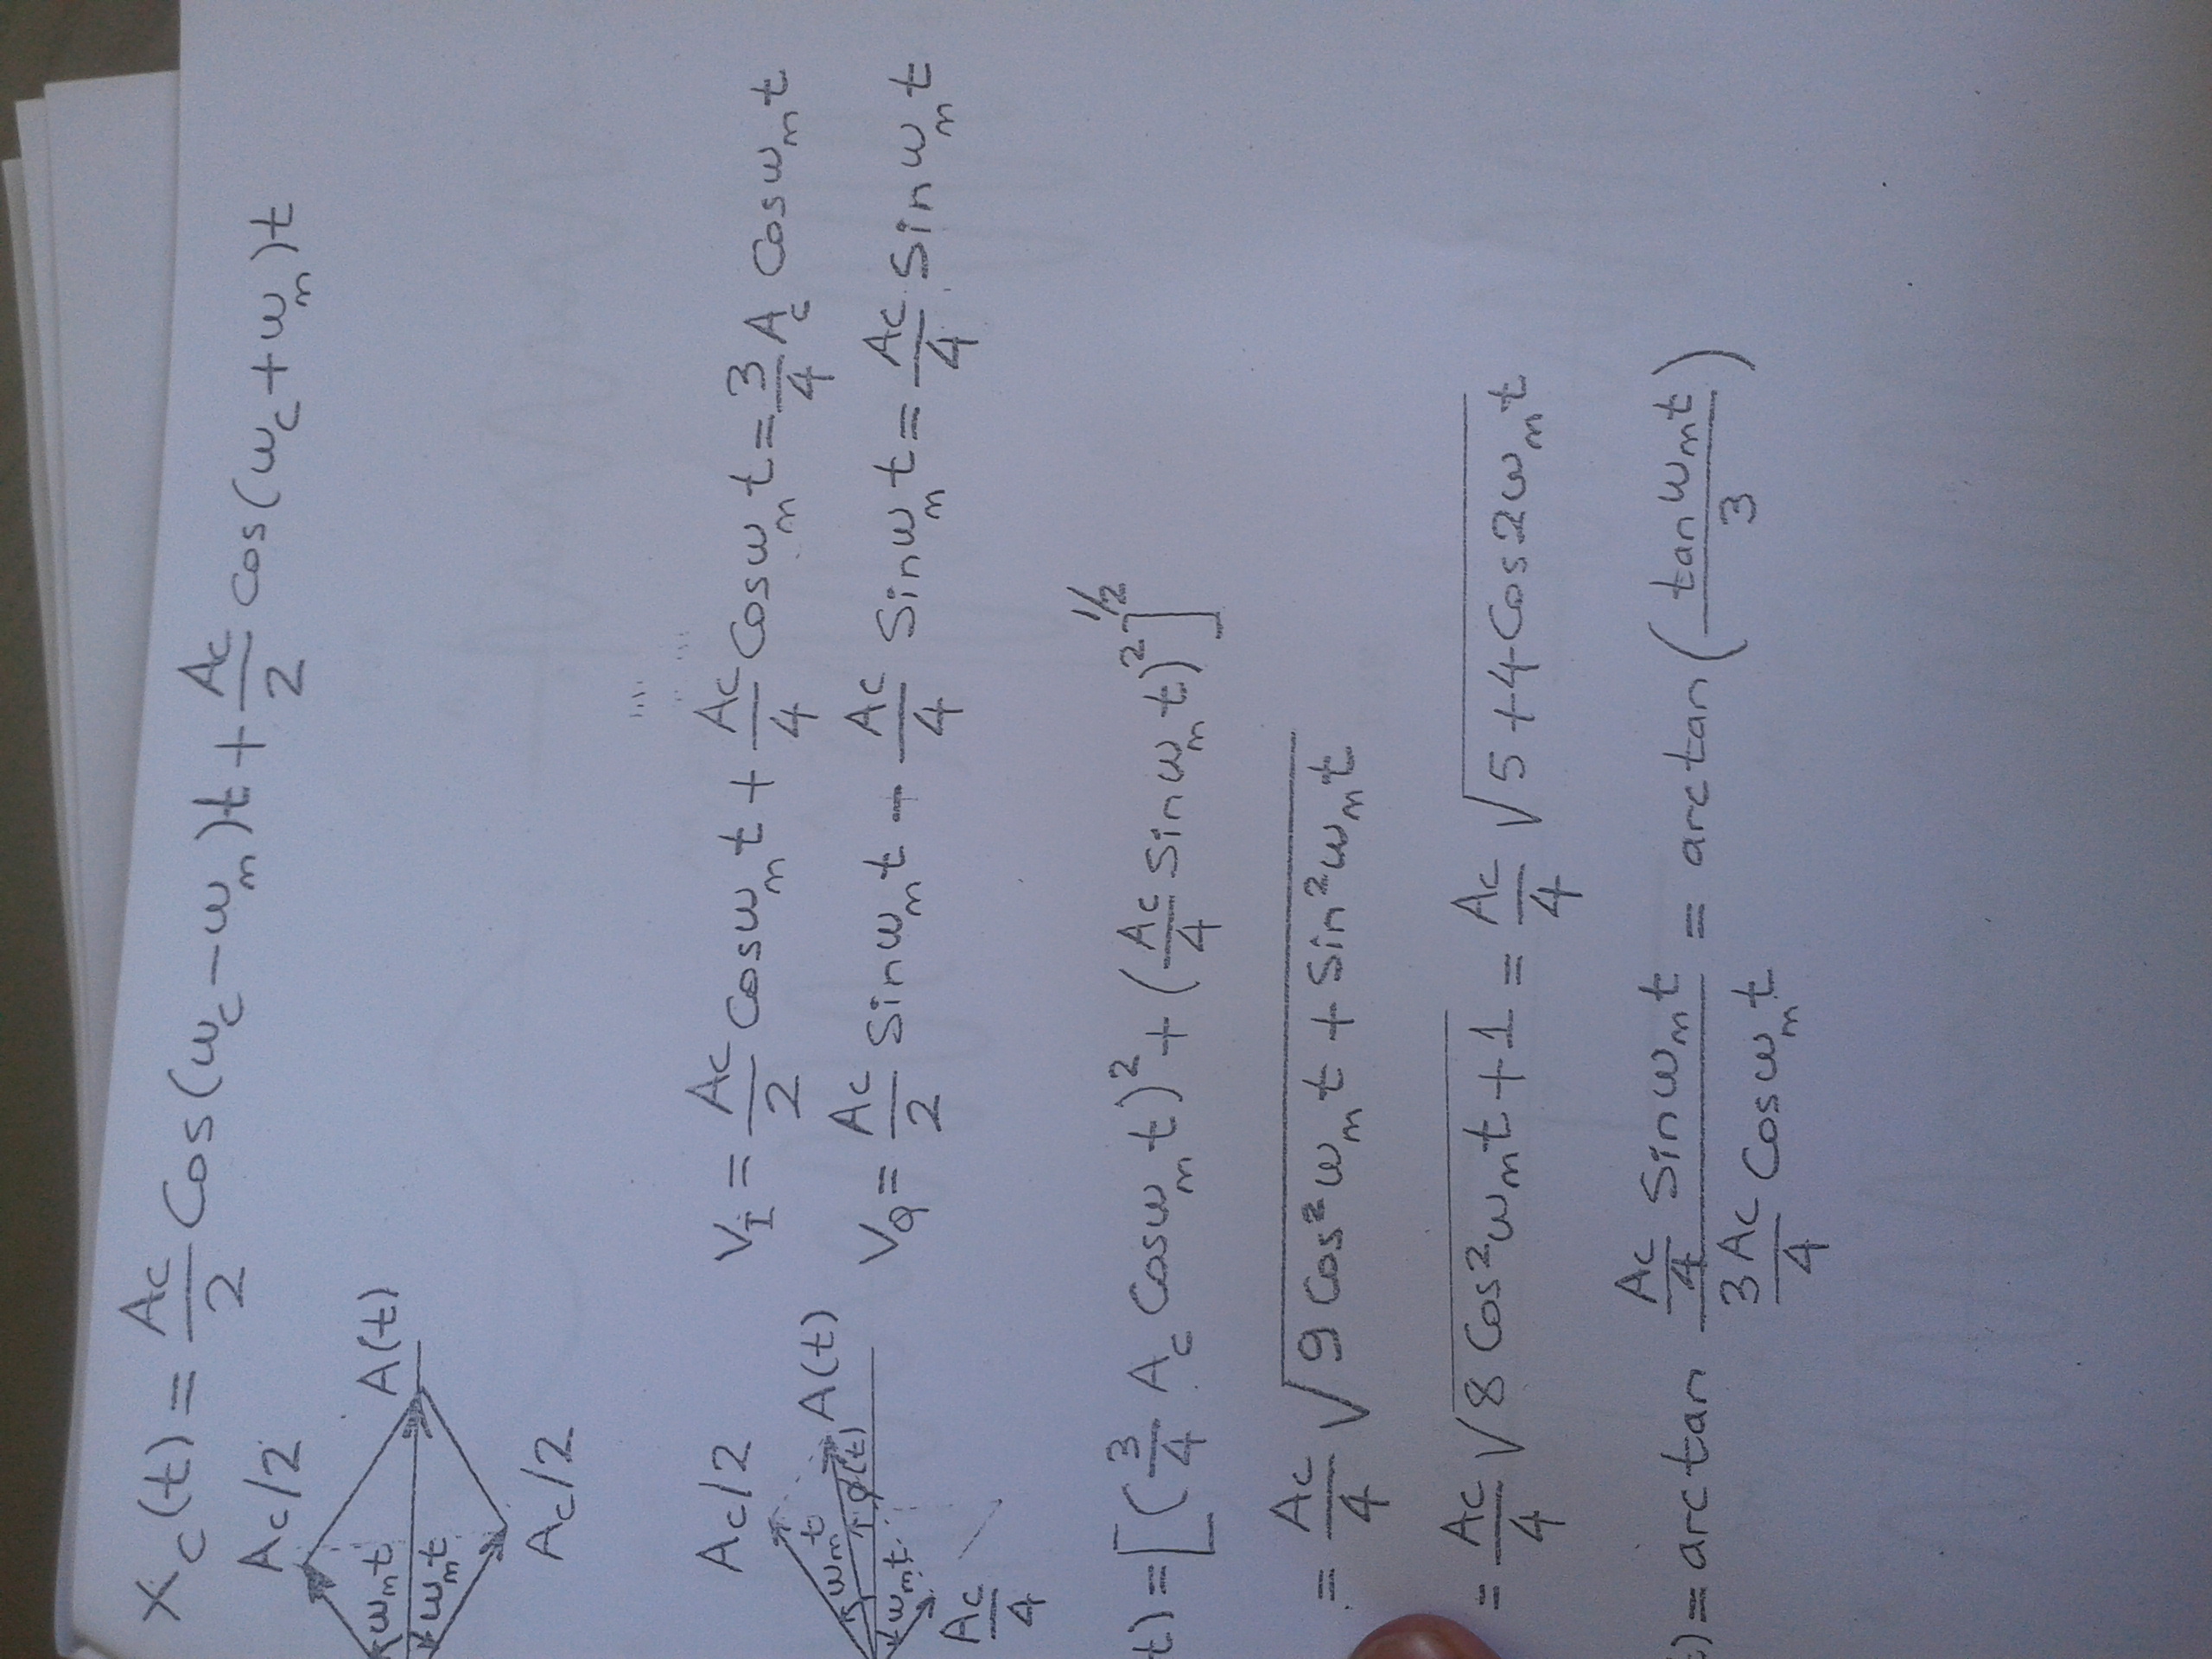 x_c(t) = Ac/2 Cos(ω_c − ω_m)t + Ac/2 Cos(ω_c + ω_m)t
Ac/2
A(t)
ω_m t
ω_m t
Ac/2
Ac/2
V_I = Ac/2 Cos ω_m t + Ac/4 Cos ω_m t = 3/4 A_c Cos ω_m t
A(t)
ω_m t
φ(t)
V_q = Ac/2 Sin ω_m t − Ac/4 Sin ω_m t = Ac/4 Sin ω_m t
ω_m t
Ac/4
t) = [(3/4 A_c Cos ω_m t)² + (Ac/4 Sin ω_m t)²]^1/2
= Ac/4 √(9 Cos² ω_m t + Sin² ω_m t)
= Ac/4 √(8 Cos² ω_m t + 1) = Ac/4 √(5 + 4 Cos 2ω_m t)
) = arctan (Ac/4 Sin ω_m t)/(3Ac/4 Cos ω_m t) = arctan(tan ω_m t/3)